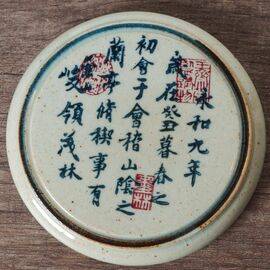 永和九年
歲在癸丑暮春之
初會于會稽山陰之
蘭亭脩稧事有
峻領茂林